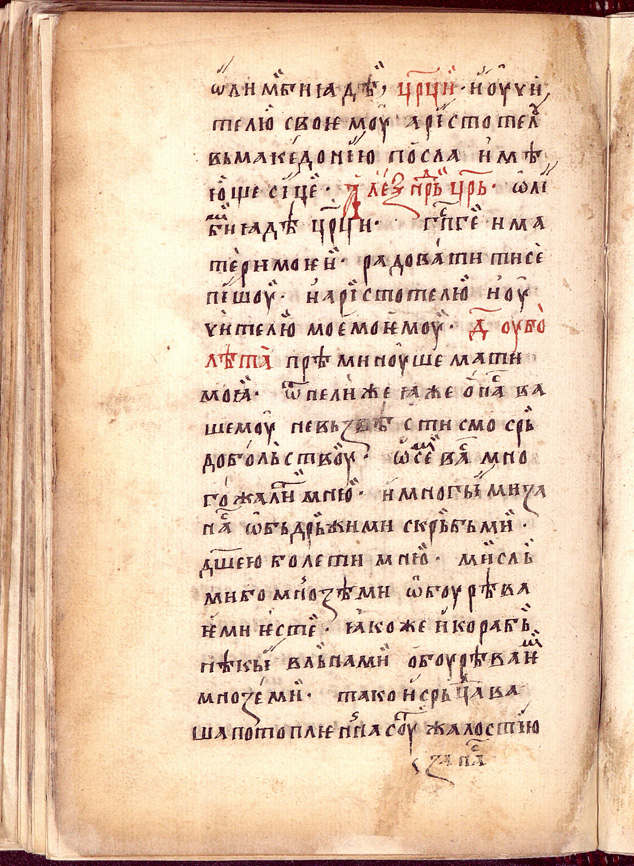 ѡлимбиꙗдѣ, црци· и оучи
телю своемоу аристотел
вь македонию посла имѣ
юще сице· Алеѯндрь црь· ѡли
мбиꙗдѣ црци· гпге и ма
тери моки· радовати ти се
пишоу· и аристотелю и оу
чителю моемоиемоу· д оубо
лѣта прѣминоуше мати
моꙗ· ѿнелиже ꙗже о нас ва
шемоу невьзвѣстисмо срь
добольствоу· ѡ сем вас мно
го жалтимню· и многыми за
нас ѡбьдрьжими скрьбьми·
дшею болети мню· мисль
ми бо мноземи ѡбоурѣва
еми есте· ꙗкоже и корабь
нѣкы вльнами обоурѣваем
многеми· тако и срьца ва
ша потоплена соут жалостию
за нас